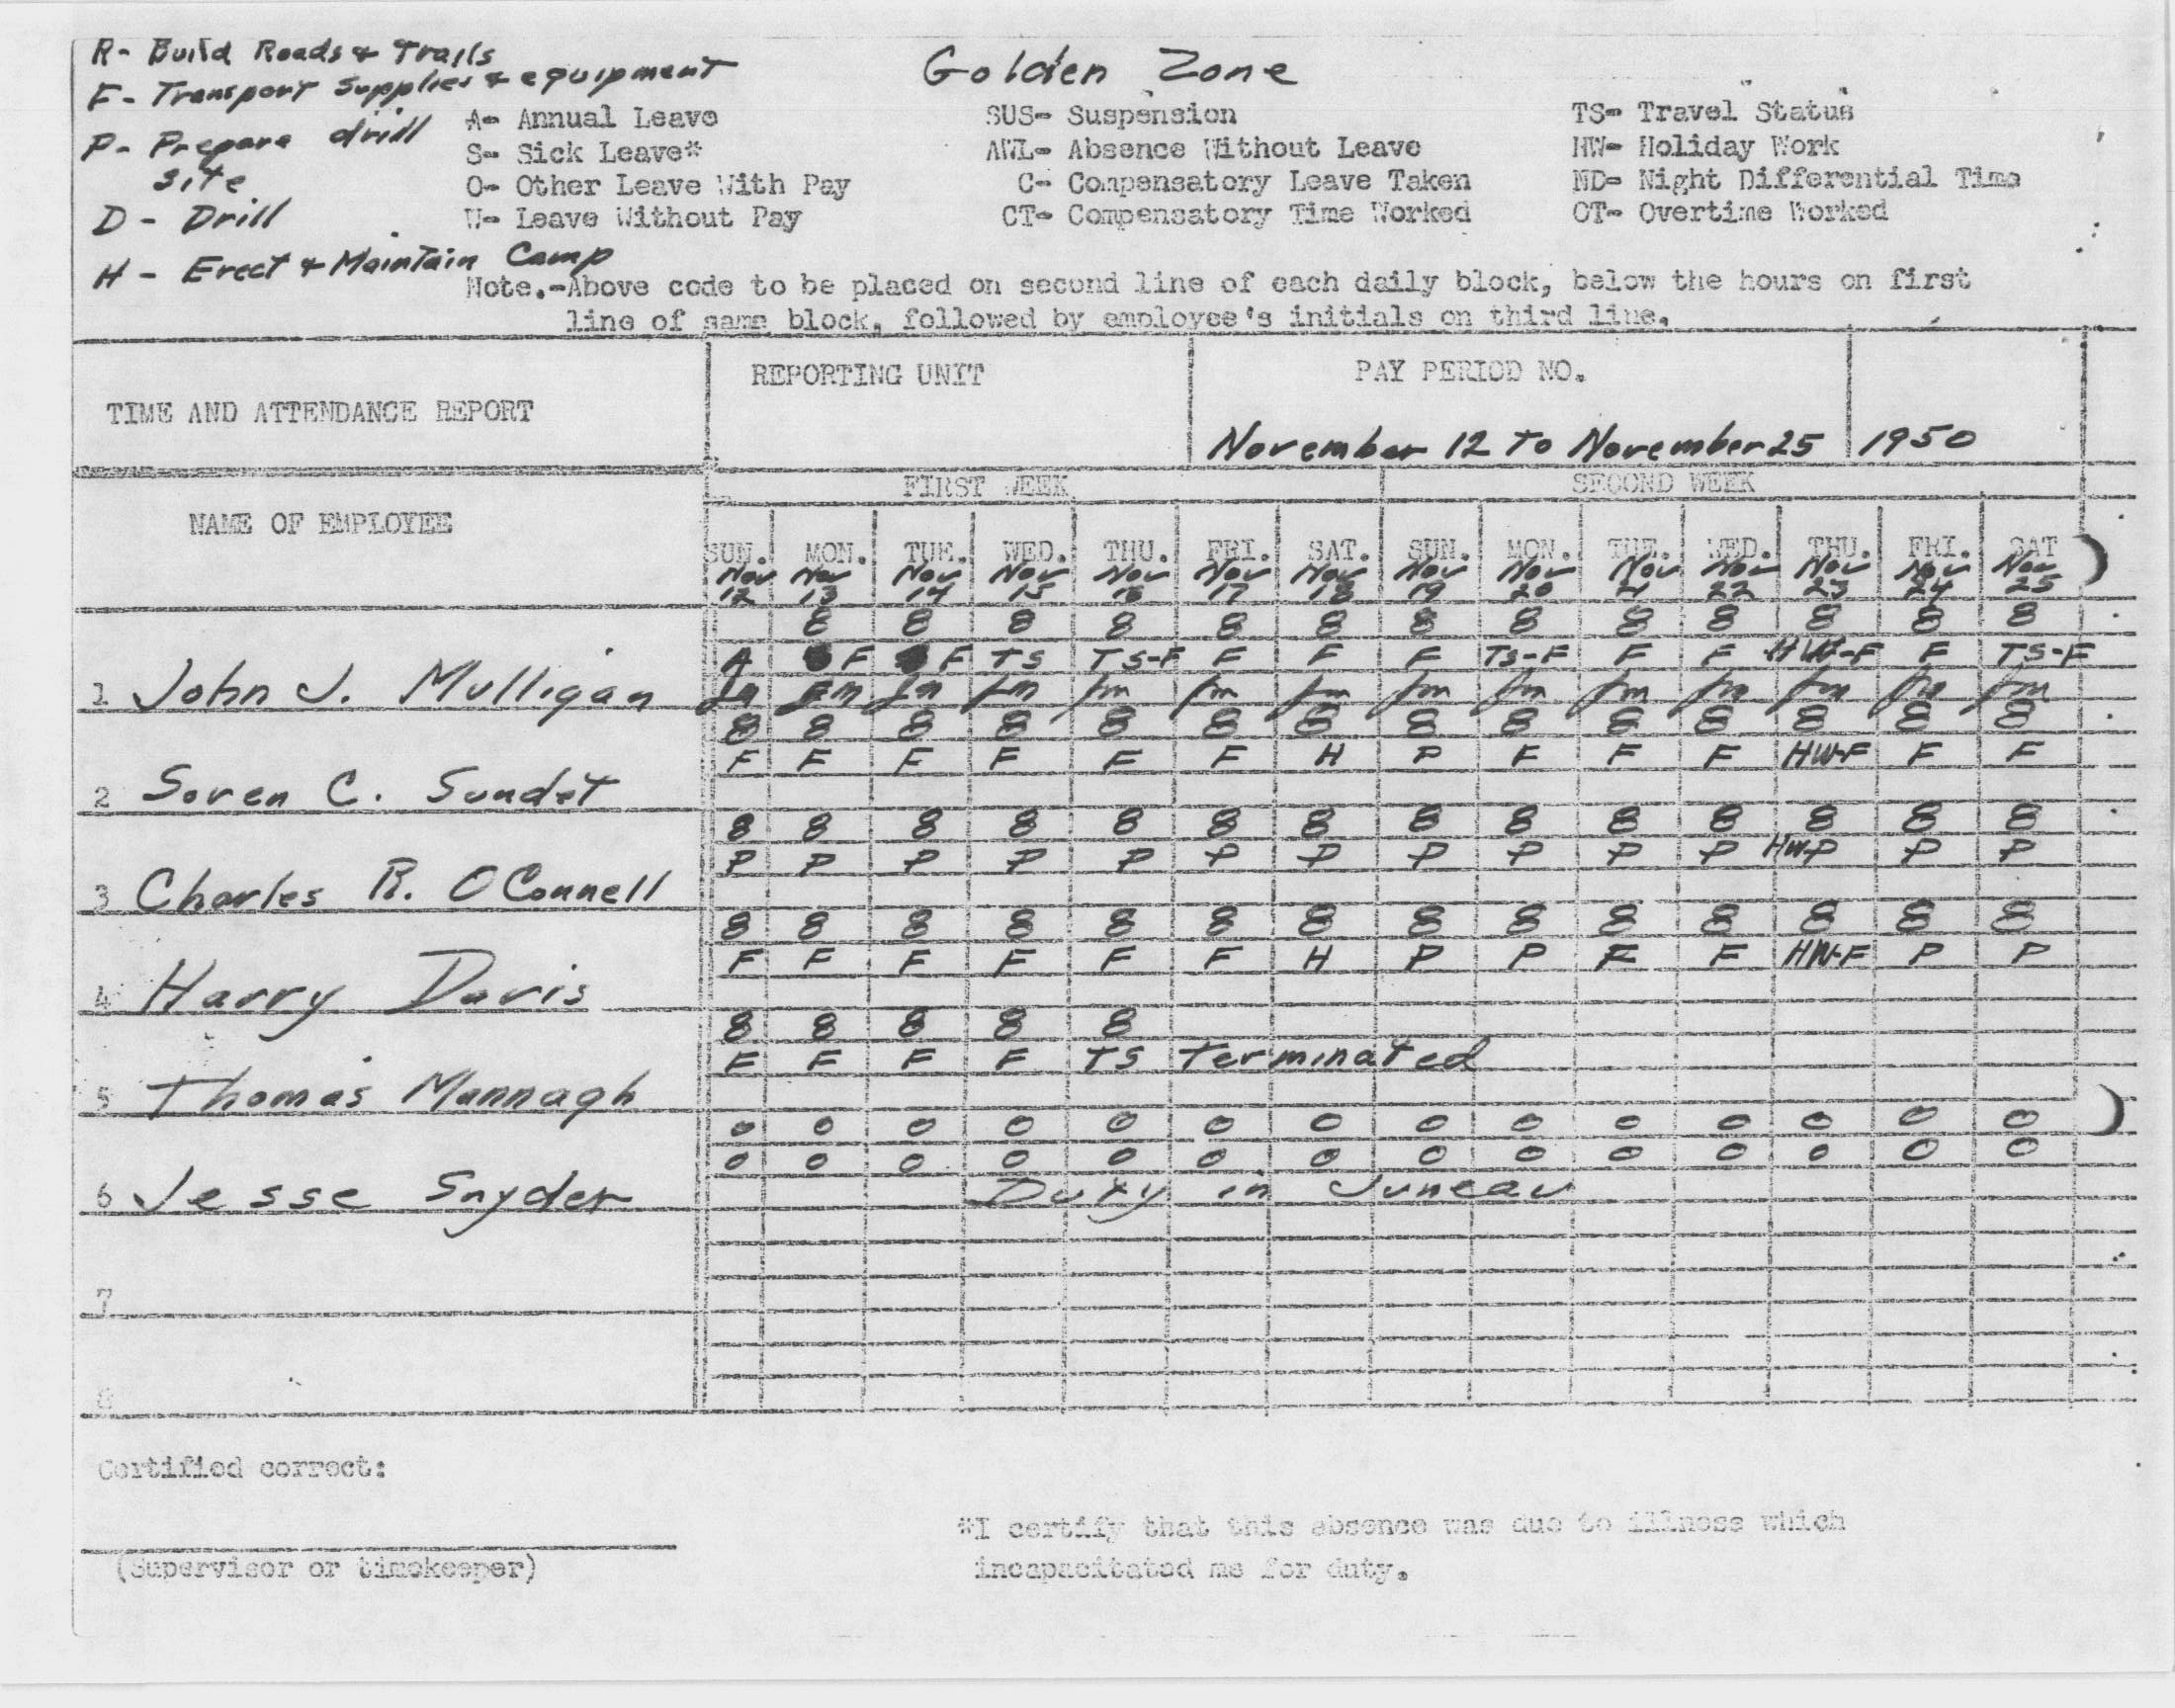 R- Build Roads & Trails
Golden Zone
F- Transport Supplies & equipment
A- Annual Leave SUS- Suspension TS- Travel Status
P- Prepare drill site
S- Sick Leave* AWL- Absence Without Leave HW- Holiday Work
O- Other Leave With Pay C- Compensatory Leave Taken ND- Night Differential Time
D- Drill
W- Leave Without Pay CT- Compensatory Time Worked OT- Overtime Worked
H- Erect & Maintain Camp
Note.-Above code to be placed on second line of each daily block, below the hours on first
line of same block, followed by employee's initials on third line.
TIME AND ATTENDANCE REPORT
REPORTING UNIT
PAY PERIOD NO.
November 12 To November 25 1950
NAME OF EMPLOYEE
FIRST WEEK SECOND WEEK
SUN. MON. TUE. WED. THU. FRI. SAT. SUN. MON. TUE. WED. THU. FRI. SAT
Nov Nov Nov Nov Nov Nov Nov Nov Nov Nov Nov Nov Nov Nov
12 13 14 15 16 17 18 19 20 21 22 23 24 25
8 8 8 8 8 8 8 8 8 8 8 8 8
A F F TS TS-F F F F TS-F F F HW-F F TS-F
1 John J. Mulligan Jm Jm Jm Jm Jm Jm Jm Jm Jm Jm Jm Jm Jm Jm
8 8 8 8 8 8 8 8 8 8 8 8 8 8
F F F F F F H P F F F HW-F F F
2 Soren C. Sundet
8 8 8 8 8 8 8 8 8 8 8 8 8 8
P P P P P P P P P P P HW-P P P
3 Charles R. OConnell
8 8 8 8 8 8 8 8 8 8 8 8 8 8
F F F F F F H P P F F HW-F P P
4 Harry Davis
8 8 8 8 8
F F F F TS Terminated
5 Thomas Mannagh
0 0 0 0 0 0 0 0 0 0 0 0 0 0
0 0 0 0 0 0 0 0 0 0 0 0 0 0
6 Jesse Snyder Duty in Juneau
7
8
Certified correct:
(Supervisor or timekeeper)
*I certify that this absence was due to illness which
incapacitated me for duty.